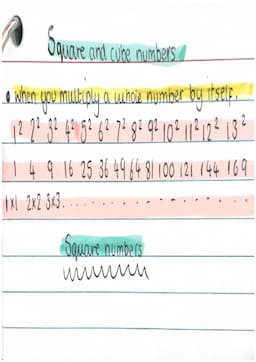 Square and cube numbers
• When you multiply a whole number by itself.
1² 2² 3² 4² 5² 6² 7² 8² 9² 10² 11² 12² 13²
1 4 9 16 25 36 49 64 81 100 121 144 169
1x1 2x2 3x3. . . . . . . . . . . . . . . .
Square numbers